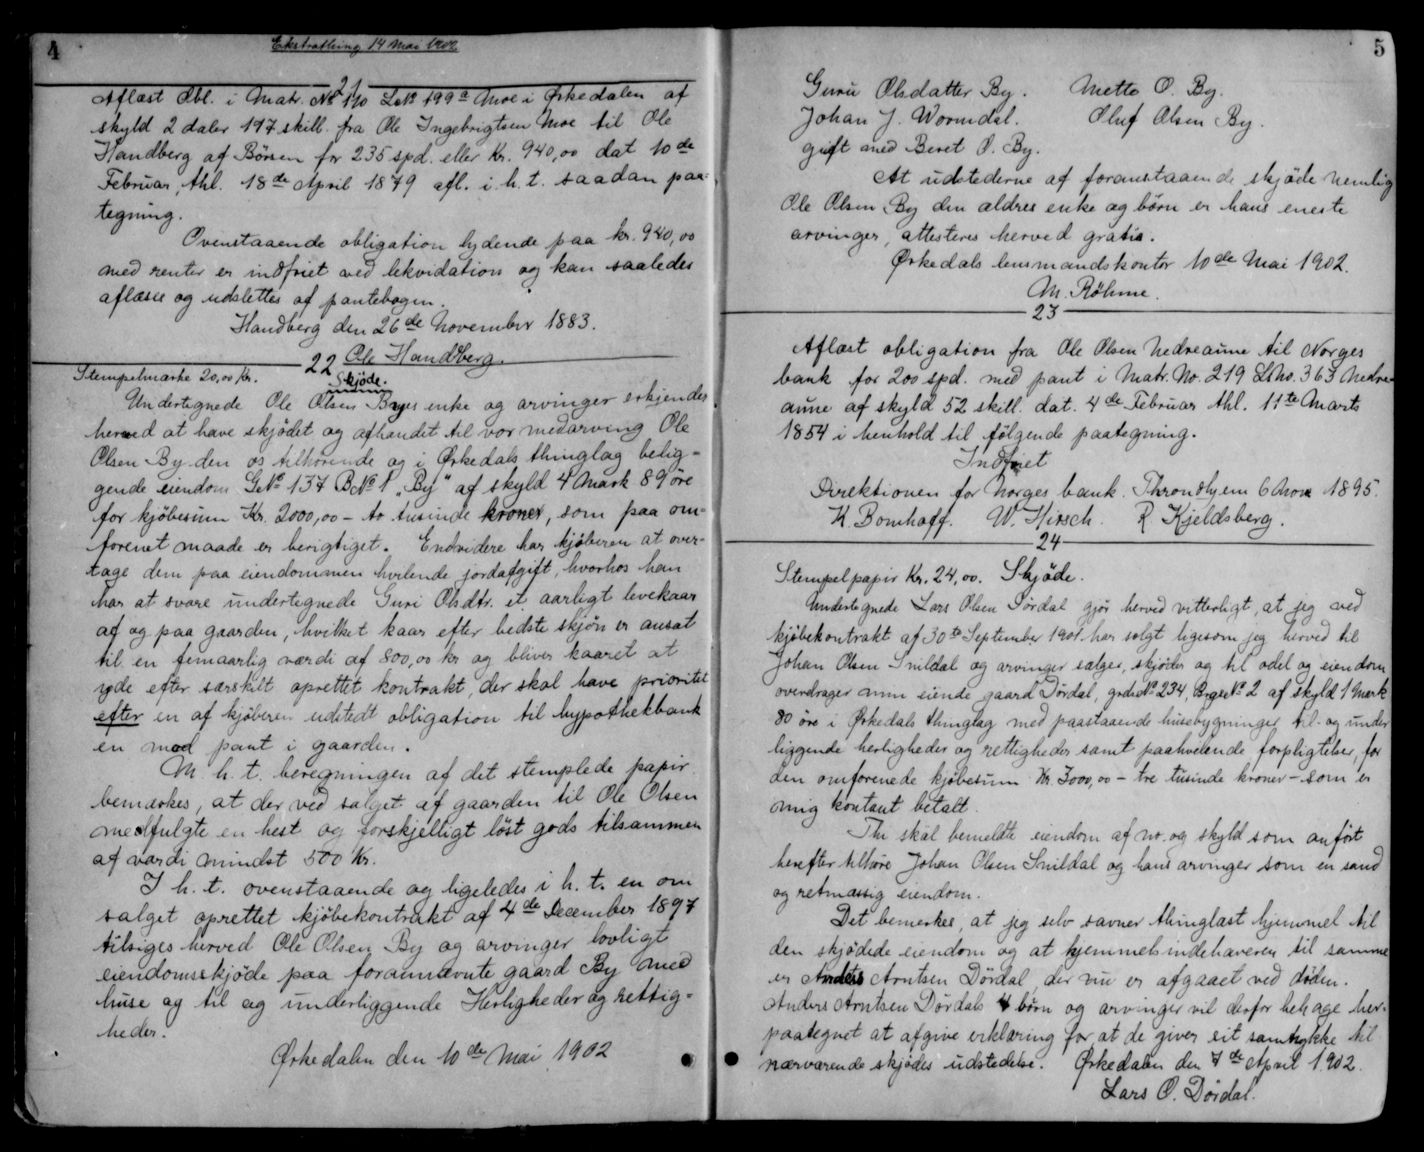 4
Ekstrathing 14 Mai 1902
21
Aflæst Obl. i Matr. No 110 LNo 199a Moe i Ørkedalen af
skyld 2 daler 117 skill. fra Ole Ingebrigtsen Moe til Ole
Handberg af Børsen for 235 spd. eller Kr. 940,00 dat 10de
Februar, thl. 18de April 1879 afl. i. h. t. saadan paa-
tegning.
Ovenstaaende obligation lydende paa kr. 940,00
med renter er indfriet ved lekvidation og kan saaledes
aflæses og udslettes af pantebogen.
Handberg den 26de November 1883.
Ole Handberg.
22
Stempelmærke 20,00 Kr.
Skjöde.
Undertegnede Ole Olsen Byes enke og arvinger erkjender
herved at have skjödet og afhandet til vor medarving Ole
Olsen By den os tilhörende og i Ørkedals thinglag belig-
gende eiendom GNo 137 BNo 1 „By" af skyld 4 Mark 89 öre
for kjöbesum Kr. 2000,00 – to tusinde kroner, som paa om-
forenet maade er berigtiget. Endvidere har kjöberen at over-
tage dem paa eiendommen hvilende jordafgift, hvorhos han
har at svare undertegnede Guri Olsdtr. et aarligt levekaar
af og paa gaarden, hvilket kaar efter bedste skjön er ansat
til en femaarlig værdi af 800,00 kr og bliver kaaret at
yde efter særskilt oprettet kontrakt, der skal have prioritet
efter en af kjöberen udstedt obligation til hypothekbank
en mod pant i gaarden.
M. h. t. beregningen af det stemplede papir
bemærkes, at der ved salget af gaarden til Ole Olsen
medfulgte en hest og forskjelligt löst gods tilsammen
af værdi mindst 500 Kr.
I h. t. ovenstaaende og ligeledes i h. t. en om
salget oprettet kjöbekontrakt af 4de December 1897
tilsiges herved Ole Olsen By og arvinger lovligt
eiendomsskjöde paa forannævnte gaard By med
huse og til og underliggende Herligheder og rettig-
heder.
Ørkedalen den 10de Mai 1902
5
Guru Olsdatter By. Mette O. By.
Johan J. Wormdal. Oluf Olsen By.
gift med Beret O. By.
At udstederne af foranstaaende skjöde nemlig
Ole Olsen By den ældres enke og börn er hans eneste
arvinger, attesteres herved gratis.
Ørkedals lensmandskontor 10de Mai 1902.
M. Röhme.
23
Aflæst obligation fra Ole Olsen Nedreaune til Norges
bank for 200 spd. med pant i Matr. No. 219 LNo. 363 Nedre-
aune af skyld 52 skill. dat. 4de Februar thl. 11te Marts
1854 i henhold til følgende paategning.
Indfriet
Direktionen for Norges bank. Throndhjem 6 Nov 1895.
K. Bomhoff. W. Hirsch. R Kjeldsberg.
24
Stempelpapir Kr. 24,00. Skjöde.
Undertegnede Lars Olsen Dördal gjör herved vitterligt, at jeg ved
kjöbekontrakt af 30te September 1901 har solgt ligesom jeg herved til
Johan Olsen Snildal og arvinger sælger, skjöder og til odel og eiendom
overdrager min eiende gaard Dördal, grdsNo 234, BrgsNo 2 af skyld 1 Mark
80 öre i Ørkedals thinglag med paastaaende husebygninger til- og under
liggende herligheder og rettigheder samt paahvilende forpligtelser, for
den omforenede kjöbesum Kr. 3000,00 – tre tusinde kroner – som er
mig kontant betalt.
Thi skal bemeldte eiendom af no. og skyld som anfört
herefter tilhöre Johan Olsen Snildal og hans arvinger som en sand
og retmæssig eiendom.
Det bemerkes, at jeg selv savner thinglæst hjemmel til
den skjödede eiendom og at hjemmelsindehaveren til samme
er Anders Arntsen Dördal, der nu er afgaaet ved döden.
Anders Arntsen Dördals 4 börn og arvinger vil derfor behage her-
paategnet at afgive erklæring for at de giver sit samtykke til
nærværende skjödes udstedelse. Ørkedalen den 7de April 1902.
Lars O. Dördal.